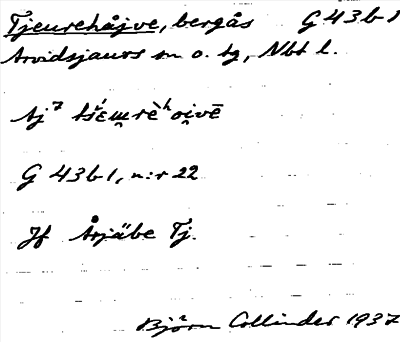 Tjeurehåjve, bergås G 43 b 1
Arvidsjaurs sn o. tg, Nbt l.
G 43 b 1, n:r 22
Jf Årjäbe Tj.
Björn Collinder 1937